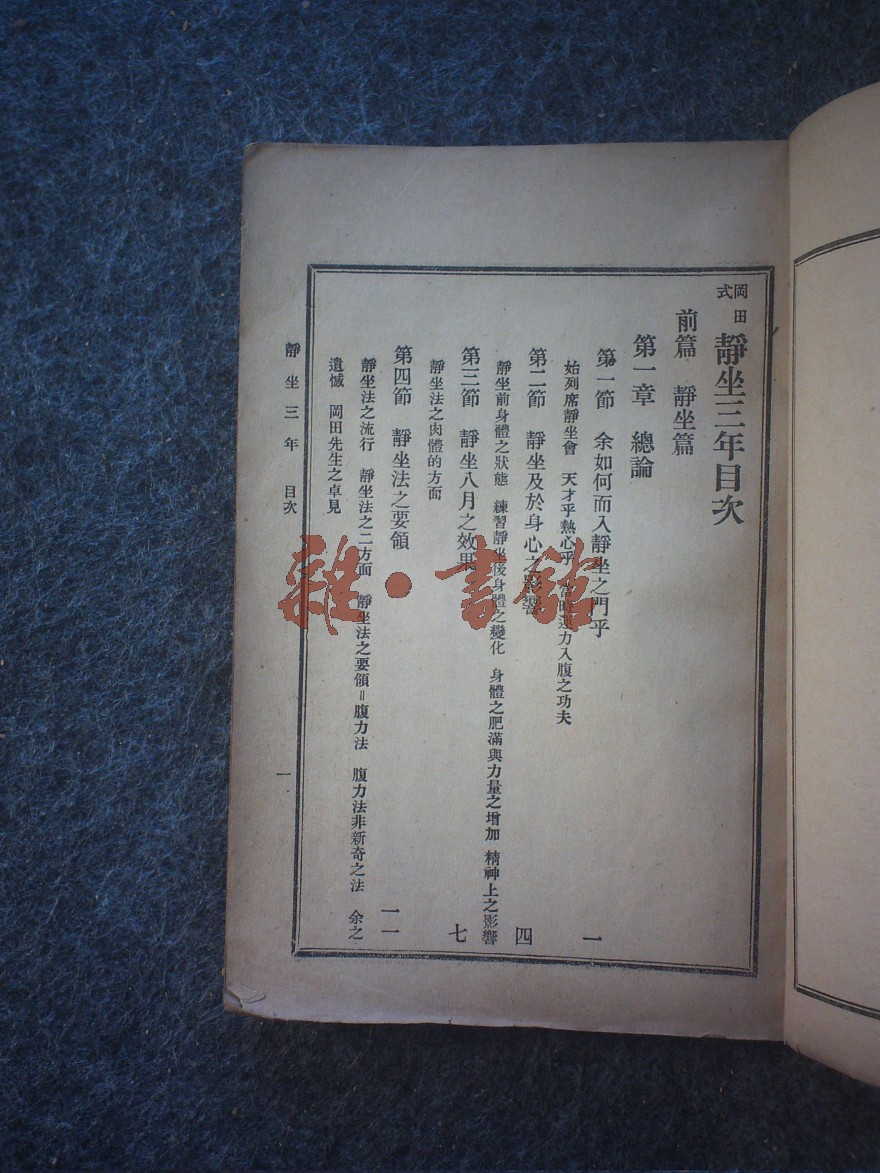 岡田式 靜坐三年目次
前篇 靜坐篇
第一章 總論
第一節 余如何而入靜坐之門乎 一
始列席靜坐會 天才乎熱心乎 力入腹之功夫
第二節 靜坐及於身心之影響 四
靜坐前身體之狀態 練習靜坐後身體之變化 身體之肥滿與力量之增加 精神上之影響
靜坐法之肉體的方面
第三節 靜坐八月之效果 七
第四節 靜坐法之要領 一一
靜坐法之流行 靜坐法之二方面 靜坐法之要領＝腹力法 腹力法非新奇之法 余之
遺憾 岡田先生之卓見
靜坐三年 目次
一
雜·書館